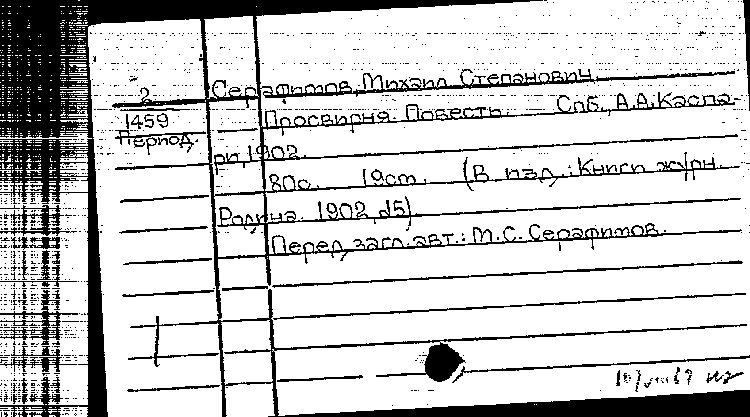 2
Серафимов, Михаил Степанович.
1459
Период.
Просвирня. Повесть. — Спб., А.А.Каспа-
ри, 1902.
180с. 19см. (В изд.: Книги журн.
Родина. 1902, №5).
Перед загл. авт.: М.С. Серафимов.